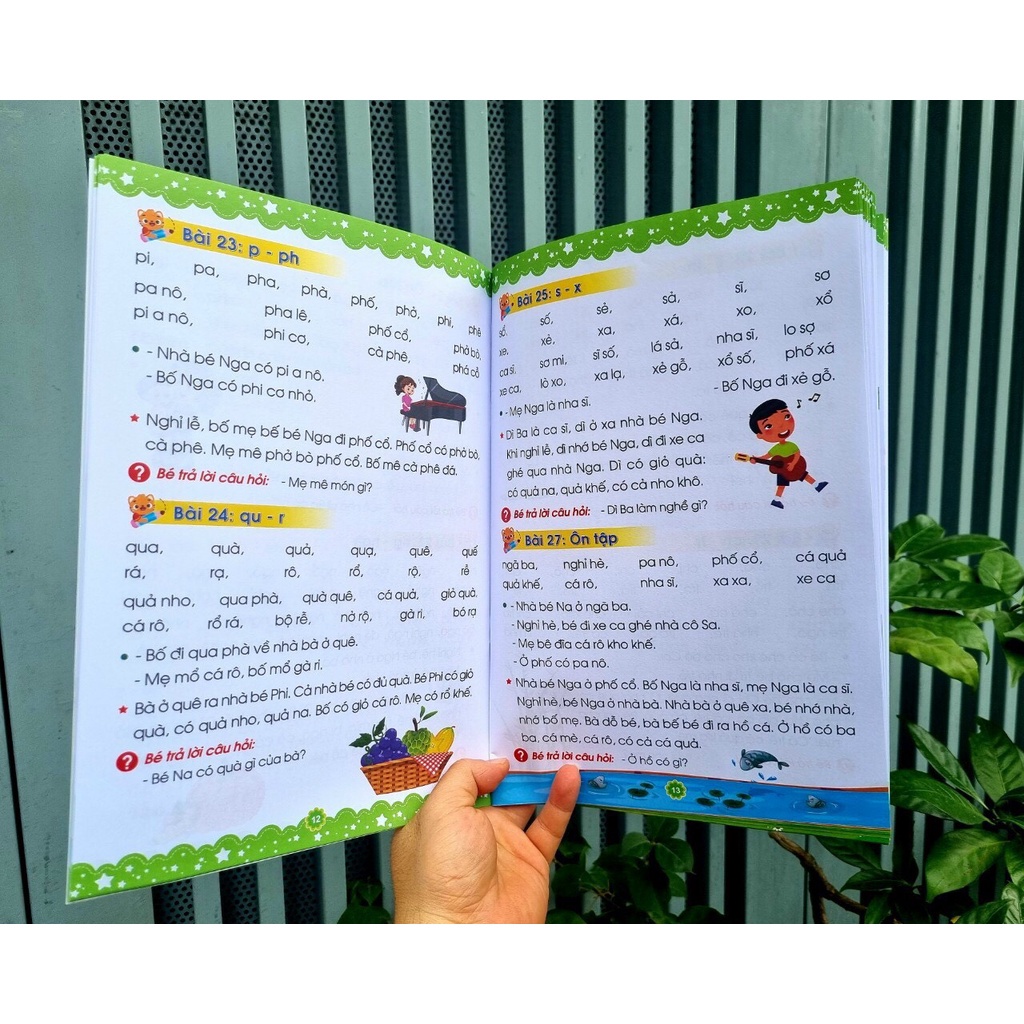 Bài 23: p - ph
pi, pa, pha, phà, phố, phò, phi, phê
pa nô, pha lê, phố cổ, phở bò,
pi a nô, phi cơ, cà phê, phá cỗ
- Nhà bé Nga có pi a nô.
- Bố Nga có phi ca nhỏ.
Nghỉ lễ, bố mẹ bế bé Nga đi phố cổ. Phố cổ có phở bò,
cà phê. Mẹ mê phở bò phố cổ. Bố mê cà phê đá.
? Bé trả lời câu hỏi: - Mẹ mê món gì?
Bài 24: qu - r
qua, quà, quả, quạ, quê, quế
rá, rạ, rô, rổ, rộ, rễ
quả nho, qua phà, quà quê, cá quả, giỏ quả.
cá rô, rổ rá, bộ rễ, nở rộ, gà ri, bó rạ
- Bố đi qua phà về nhà bà ở quê.
- Mẹ mổ cá rô, bố mổ gà ri.
Bà ở quê ra nhà bé Phi. Cả nhà bé có đủ quà. Bé Phi có giỏ
quà, có quả nho, quả na. Bố có giỏ cá rô. Mẹ có rổ khế.
? Bé trả lời câu hỏi:
- Bé Na có quà gì của bà?
12
Bài 25: s - x
sổ, số, sẻ, sả, sĩ, sơ
xe, xẻ, xa, xá, xo, xổ
ca sĩ, sơ mi, sĩ số, lá sả, nha sĩ, lo sợ
xe ca, lò xo, xa lạ, xẻ gỗ, xổ số, phố xá
- Mẹ Nga là nha sĩ. - Bố Nga đi xẻ gỗ.
Dì Ba là ca sĩ, dì ở xa nhà bé Nga.
Khi nghỉ lễ, dì nhớ bé Nga, dì đi xe ca
ghé qua nhà Nga. Dì có giỏ quà:
có quả na, quả khế, có cả nho khô.
? Bé trả lời câu hỏi: - Dì Ba làm nghề gì?
Bài 27: Ôn tập
ngã ba, nghỉ hè, pa nô, phố cổ, cá quả
quả khế, cá rô, nha sĩ, xa xa, xe ca
- Nhà bé Na ở ngã ba.
- Nghỉ hè, bé đi xe ca ghé nhà cô Sa.
- Mẹ bê đĩa cá rô kho khế.
- Ở phố có pa nô.
Nhà bé Nga ở phố cổ. Bố Nga là nha sĩ, mẹ Nga là ca sĩ.
Nghỉ hè, bé Nga ở nhà bà. Nhà bà ở quê xa, bé nhớ nhà,
nhớ bố mẹ. Bà dỗ bé, bà bế bé đi ra hồ cá. Ở hồ có ba
ba, cá mè, cá rô, có cả cá quả.
? Bé trả lời câu hỏi: - Ở hồ có gì?
13